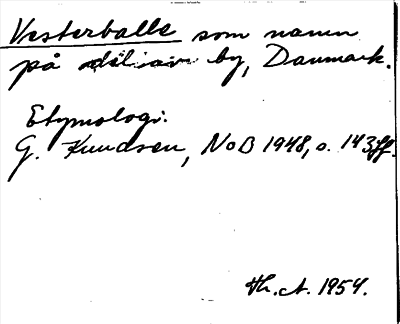 Vesterballe som namn
på by, Danmark.
Etymologi:
G. Knudsen, NoB 1948, s. 143ff.
Th. A. 1954.